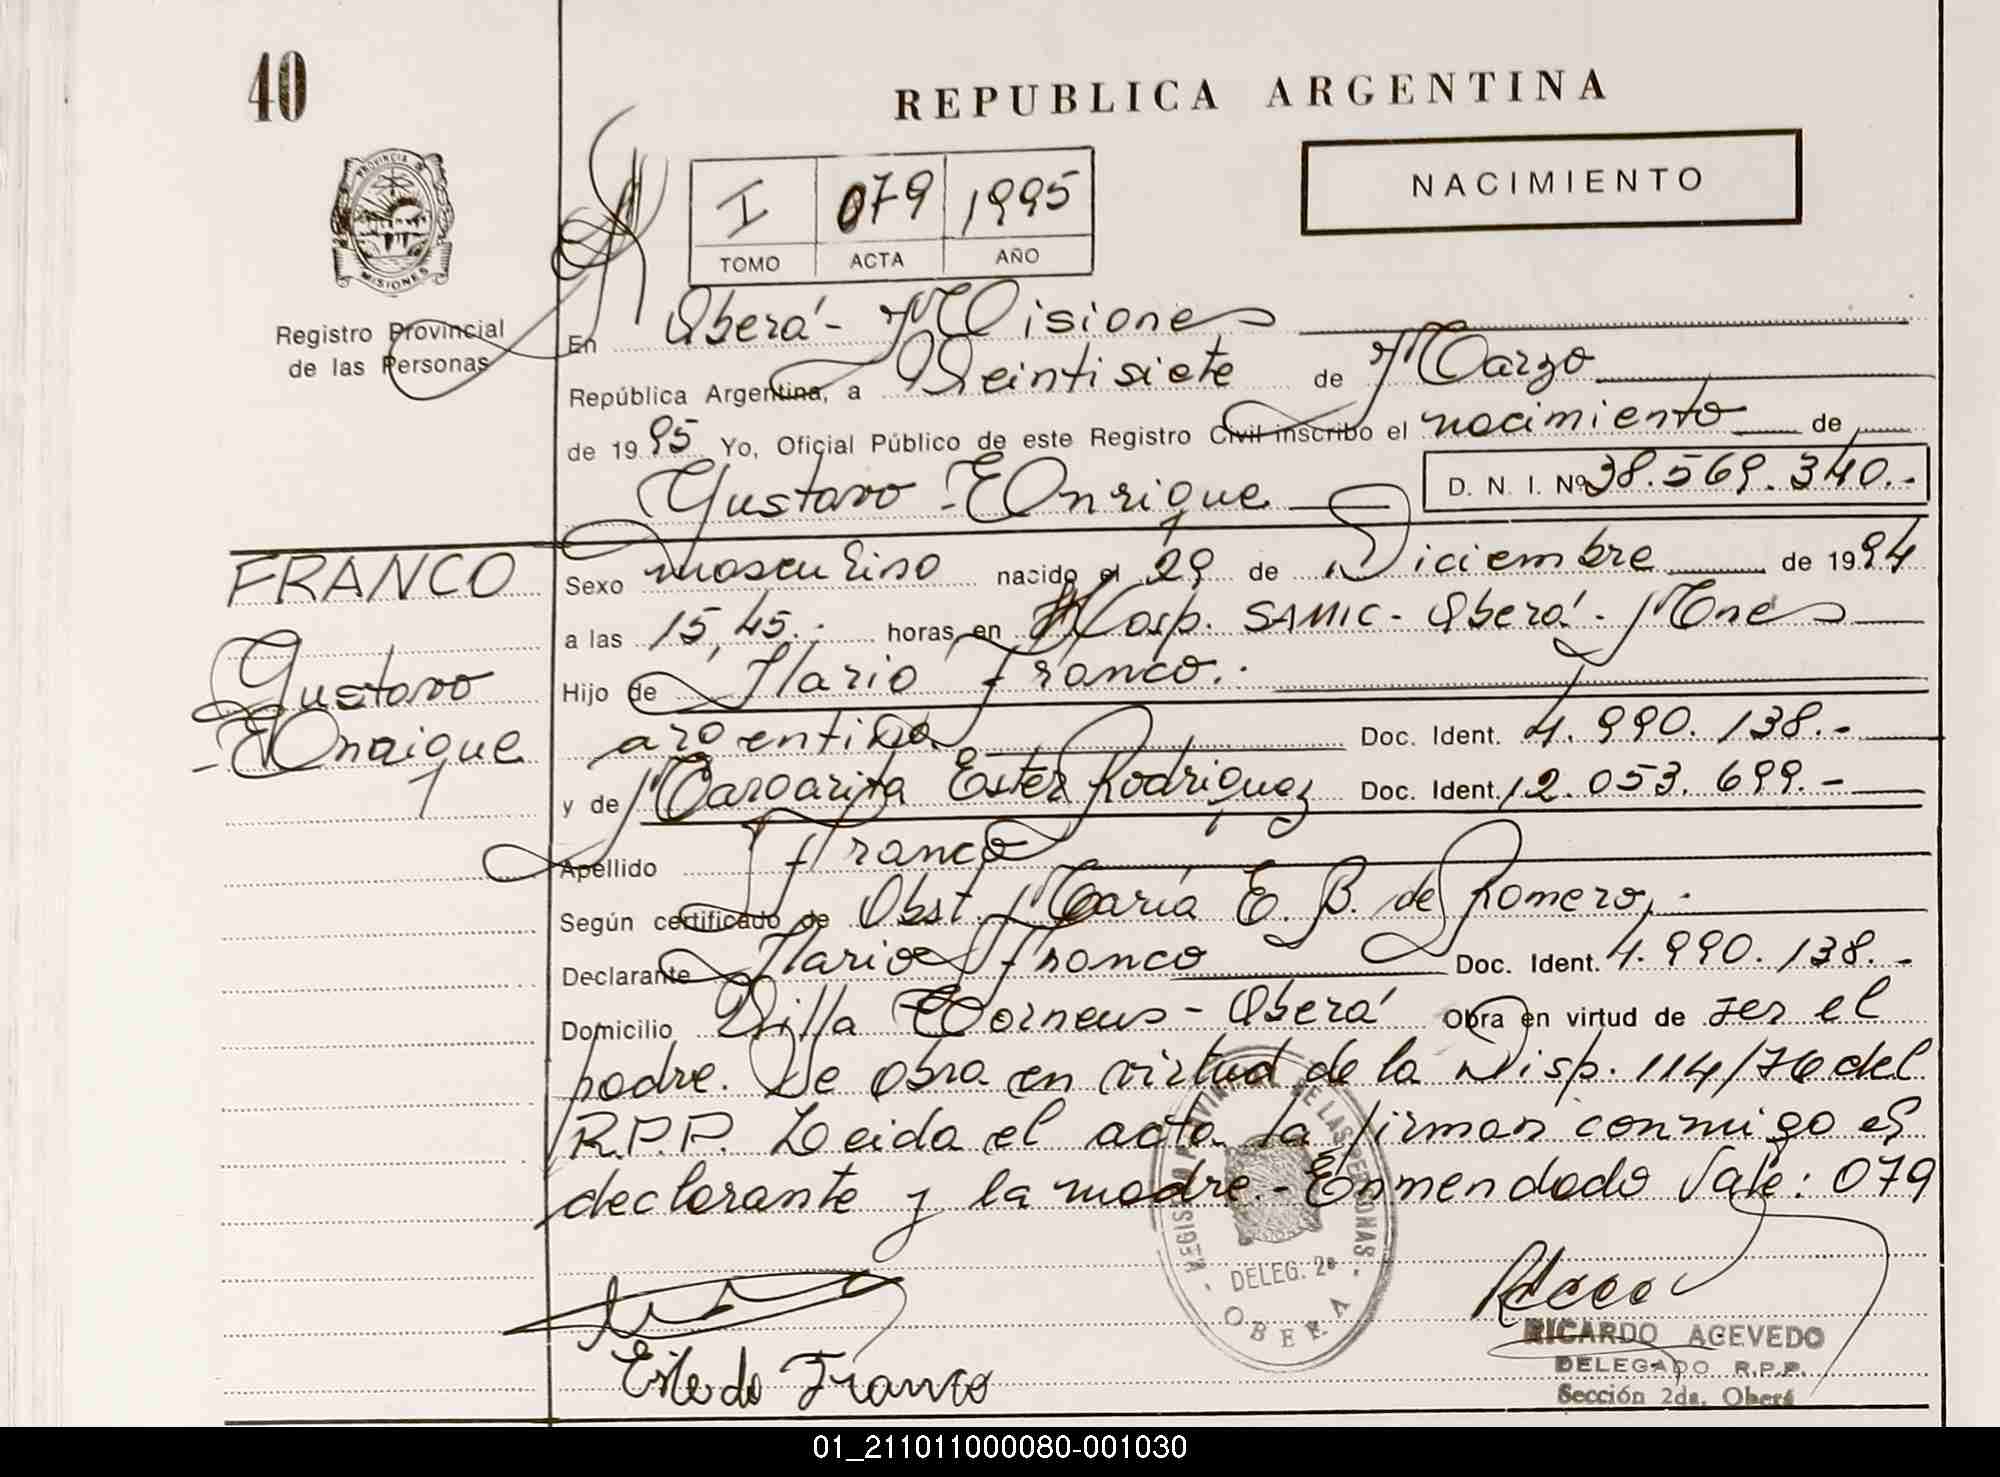 40
REPUBLICA ARGENTINA
PROVINCIA DE
MISIONES
Registro Provincial
de las Personas
I 079 1995
TOMO ACTA AÑO
NACIMIENTO
En Oberá - Misiones
República Argentina, a Veintisiete de Marzo
de 1995 Yo, Oficial Público de este Registro Civil inscribo el nacimiento de
Gustavo Enrique D. N. I. Nº 38.569.340.-
FRANCO
Gustavo
Enrique
Sexo masculino nacido el 29 de Diciembre de 1994
a las 15,45.- horas en Hosp. SAMIC - Oberá - Mnes
Hijo de Ilario Franco.-
argentina Doc. Ident. 4.990.138.-
y de Margarita Ester Rodriguez Doc. Ident. 12.053.699.-
Apellido Franco
Según certificado de Obst. María E. B. de Romero.-
Declarante Ilario Franco Doc. Ident. 4.990.138.-
Domicilio Villa - Oberá Obra en virtud de ser el
padre. Se obra en virtud de la Disp. 114/76 del
R.P.P. Leida el acta la firman conmigo el
declarante y la madre.- Enmendado Vale: 079
REGISTRO PROVINCIAL DE LAS PERSONAS
DELEG. 2ª
OBERA
Franco
RICARDO ACEVEDO
DELEGADO R.P.P.
Sección 2da. Oberá
01_211011000080-001030